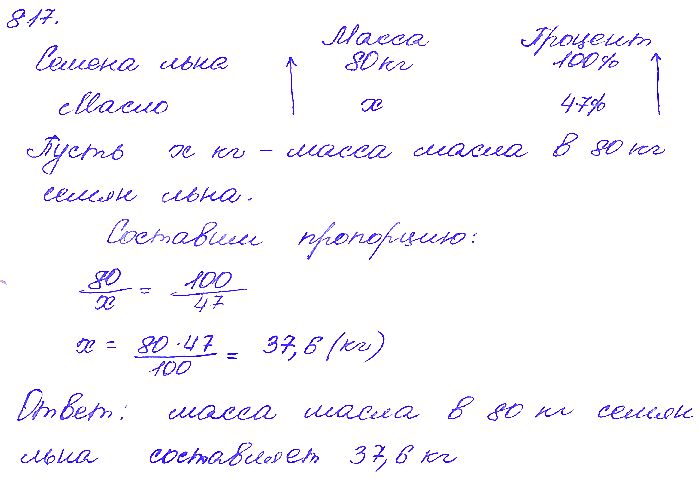 817.
Масса Процент
Семена льна 80 кг 100%
Масло x 47%
Пусть x кг – масса масла в 80 кг
семян льна.
Составим пропорцию:
80/x = 100/47
x = 80·47/100 = 37,6 (кг)
Ответ: масса масла в 80 кг семян
льна составляет 37,6 кг